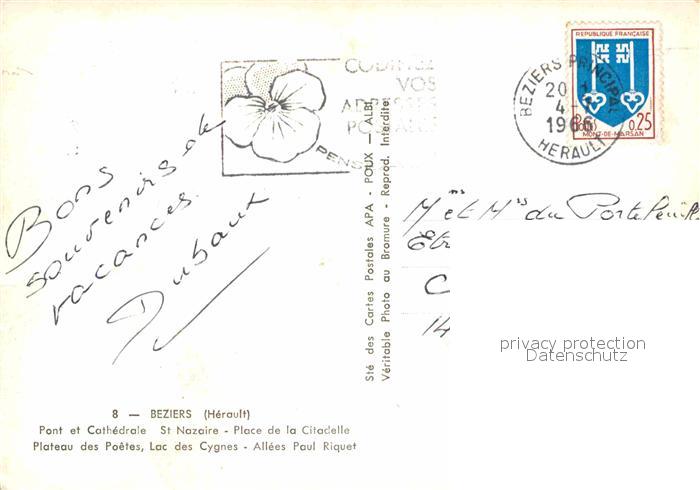 REPUBLIQUE FRANÇAISE
0.25
MONT-DE-MARSAN
BEZIERS PRINCIPAL
20
4-
1966
HERAULT
CODIFIEZ
VOS
ADRESSES
POSTALES
Bons
souvenirs de
vacances.
Dubaut
M et M du
14
Sté des Cartes Postales APA - POUX - ALBI
Véritable Photo au Bromure - Reprod. Interdite
privacy protection
Datenschutz
8 — BEZIERS (Hérault)
Pont et Cathédrale St Nazaire - Place de la Citadelle
Plateau des Poètes, Lac des Cygnes - Allées Paul Riquet